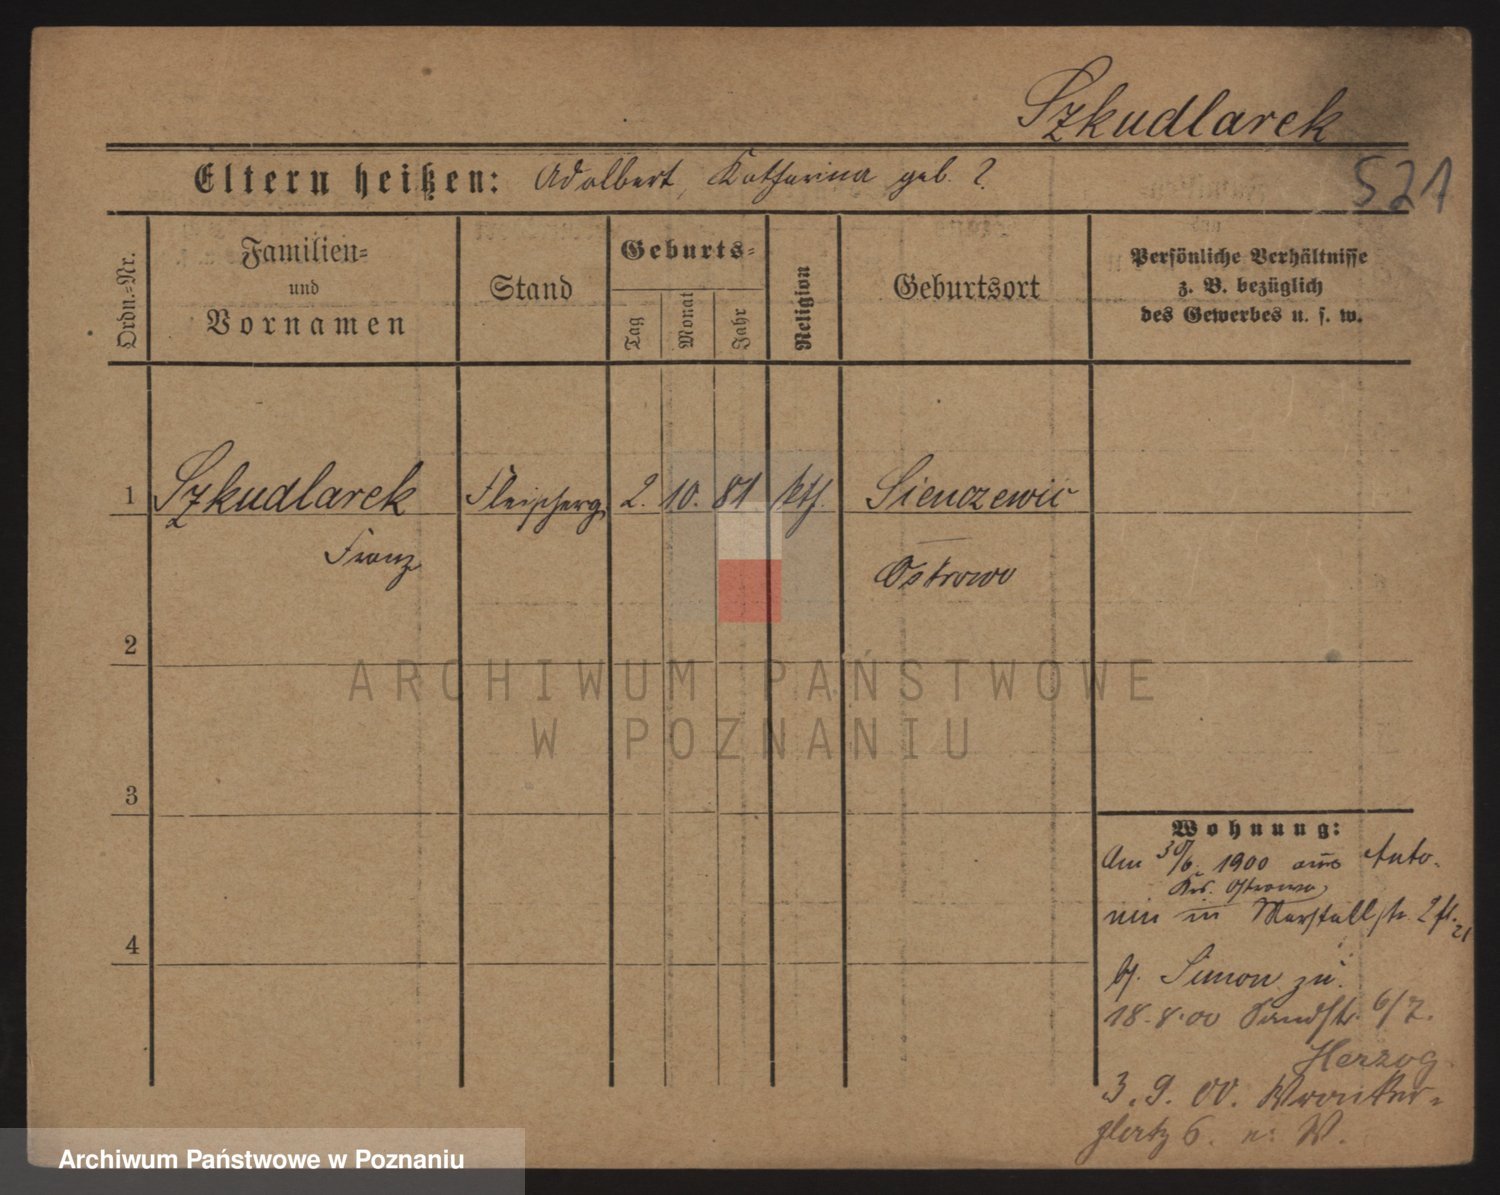 Szkudlarek
Eltern heißen: Adalbert, Katharina geb. ?
521
Ordn.-Nr.
Familien- und Vornamen
Stand
Geburts-
Tag
Monat
Jahr
Religion
Geburtsort
Persönliche Verhältnisse
z. B. bezüglich
des Gewerbes u. s. w.
1 Szkudlarek Fleischerg. 2. 10. 81 kth. Sienczewic
Franz Ostrowo
2
3
4
Wohnung:
Am 30/6. 1900 aus Anto-
Krs. Ostrowo
nin in Marstallstr. 2 fl. 21
bj. Simon zu.
18.8.00 Sandstr. 6/7.
Herzog
3. 9. 00. Wronker-
platz 6. n: W.
ARCHIWUM PAŃSTWOWE
W POZNANIU
Archiwum Państwowe w Poznaniu